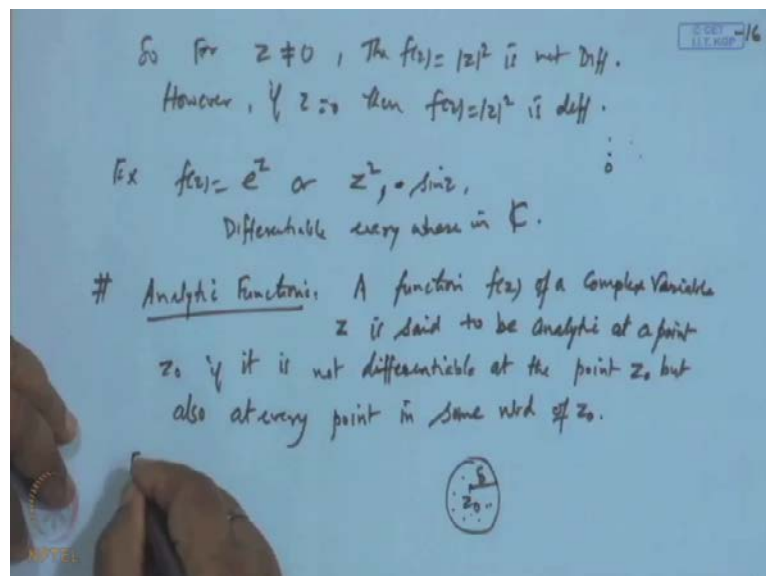 So For z ≠ 0, The f(z) = |z|² is not Diff.
However, if z = 0 then f(z) = |z|² is diff.
Ex f(z) = e^z or z², sin z,
Differentiable every where in ℂ.
# Analytic Function: A function f(z) of a Complex Variable
z is said to be analytic at a point
z₀ if it is not differentiable at the point z₀ but
also at every point in some nbd of z₀.
δ
z₀
© CET
I.I.T. KGP
-16
0
NPTEL